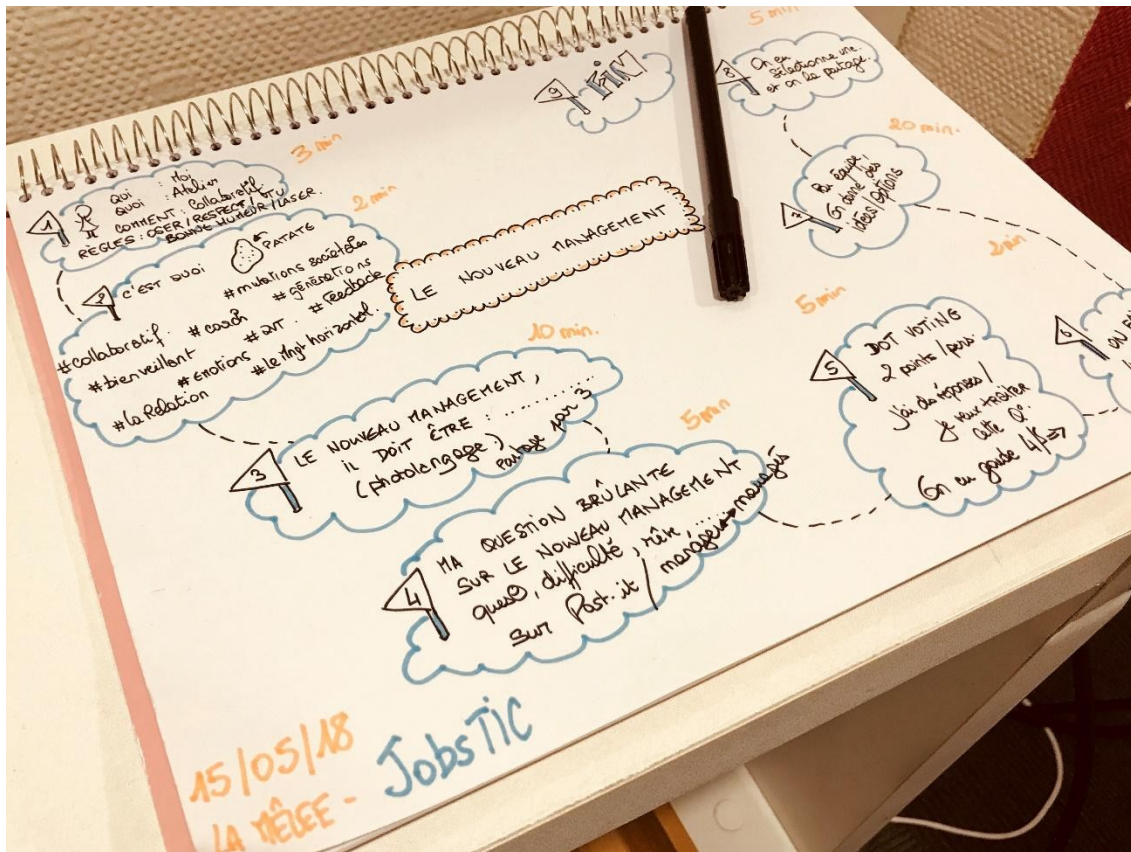 3 min
1
QUI : Moi
QUOI : Atelier
COMMENT : Collaboratif
RÈGLES : OSER / RESPECT / TU
BONNE HUMEUR / LASER.
2 min
2
C'EST QUOI
PATATE
#mutations sociétales
#générations
#collaboratif #coach #QVT #Feedback
#bienveillant #émotions #le Mngt horizontal.
#la Relation
LE NOUVEAU MANAGEMENT
10 min.
3
LE NOUVEAU MANAGEMENT,
IL DOIT ÊTRE : ..............
(photolangage) Partage par 3
5 min
4
MA QUESTION BRÛLANTE
SUR LE NOUVEAU MANAGEMENT
difficulté, rêve, ......
sur Post-it / managers managés
5 min
5
DOT VOTING
2 points / pers.
J'ai des réponses /
je veux traiter
cette Q°.
On en garde 4/5 =>
2 min
6
ON
20 min.
7
En équipe,
On donne des
idées / options
5 min
8
On en
sélectionne une
et on la partage.
9
FIN
15/05/18
LA MÊLEE - JobsTIC